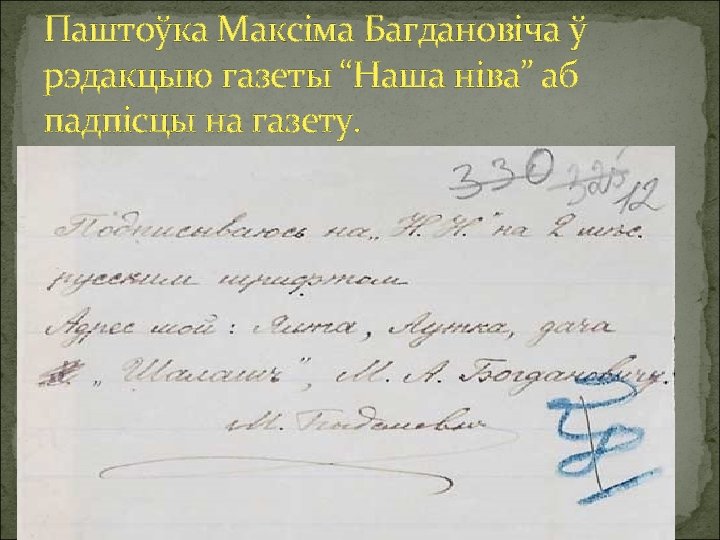 Паштоўка Максіма Багдановіча ў
рэдакцыю газеты “Наша ніва” аб
падпісцы на газету.
330 325 12
Подписываюсь на „Н. Н.“ на 2 мѣс.
русским шрифтом
Адрес мой: Ялта, Аутка, дача
„Шалаш“, М. А. Богдановичу.
М.